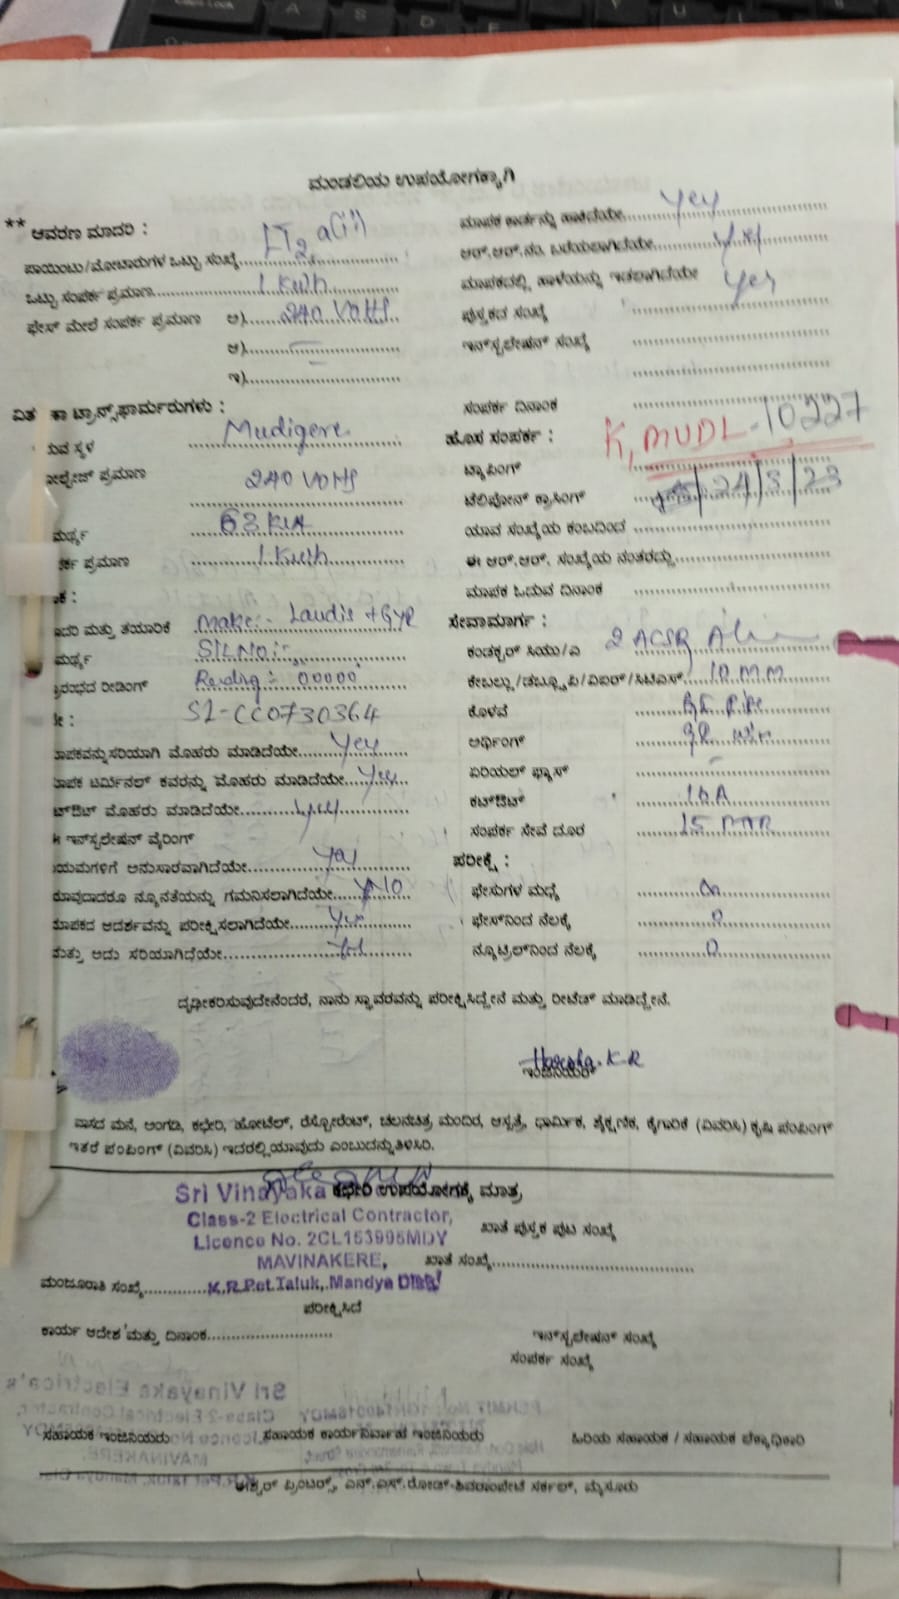 ಮಂಡಲಿಯ ಉಪಯೋಗಕ್ಕಾಗಿ
** ಆವರಣ ಮಾದರಿ : LT2 a(ii)
ಪಾಯಿಂಟು/ಮೋಟಾರುಗಳ ಒಟ್ಟು ಸಂಖ್ಯೆ
ಒಟ್ಟು ಸಂಪರ್ಕ ಪ್ರಮಾಣ 1 Kwh
ಫೇಸ್ ಮೇಲೆ ಸಂಪರ್ಕ ಪ್ರಮಾಣ ಅ) 240 Volts
ಆ)
ಇ)
ಕಾ ಟ್ರಾನ್ಸ್‌ಫಾರ್ಮರುಗಳು :
ಸ್ಥಳ Mudigere
ಪ್ರಮಾಣ 240 Volts
63 KVA
ಪ್ರಮಾಣ 1 Kwh
ಮತ್ತು ತಯಾರಿಕೆ Make:- Laudis +Gyr
SLNO:-
ರೀಡಿಂಗ್ Reading: 00000
S1-CC0730364
ಮೊಹರು ಮಾಡಿದೆಯೇ Yes
ಟರ್ಮಿನಲ್ ಕವರನ್ನು ಮೊಹರು ಮಾಡಿದೆಯೇ Yes
ಮೊಹರು ಮಾಡಿದೆಯೇ Yes
ಇನ್‌ಸ್ಟಲೇಷನ್ ವೈರಿಂಗ್
ಅನುಸಾರವಾಗಿದೆಯೇ Yes
ನ್ಯೂನತೆಯನ್ನು ಗಮನಿಸಲಾಗಿದೆಯೇ NO
ಆದರ್ಶವನ್ನು ಪರೀಕ್ಷಿಸಲಾಗಿದೆಯೇ Yes
ಮತ್ತು ಅದು ಸರಿಯಾಗಿದೆಯೇ Yes
ಮಾಪಕ ಕಾರ್ಡನ್ನು ಹಾಕಿದೆಯೇ Yes
ಆರ್.ಆರ್.ನಂ. ಬರೆಯಲಾಗಿದೆಯೇ Yes
ಮಾಪಕದಲ್ಲಿ ಹಾಳೆಯನ್ನು ಇಡಲಾಗಿದೆಯೇ Yes
ಪುಸ್ತಕದ ಸಂಖ್ಯೆ
ಇನ್‌ಸ್ಟಲೇಷನ್ ಸಂಖ್ಯೆ
ಸಂಪರ್ಕ ದಿನಾಂಕ
ಹೊಸ ಸಂಪರ್ಕ : K, MUDL-10227
ಟ್ಯಾಪಿಂಗ್
ಟೆಲಿಫೋನ್ ಕ್ರಾಸಿಂಗ್ 24/3/23
ಯಾವ ಸಂಖ್ಯೆಯ ಕಂಬದಿಂದ
ಈ ಆರ್.ಆರ್. ಸಂಖ್ಯೆಯ ನಂತರದ್ದು
ಮಾಪಕ ಓದುವ ದಿನಾಂಕ
ಸೇವಾಮಾರ್ಗ :
ಕಂಡಕ್ಟರ್ ಸಿಯು/ಎ 2 ACSR
ಕೇಬಲ್ಲು/ಡಬ್ಲ್ಯೂಪಿ/ವಿಐಆರ್/ಸಿಟಿಎಸ್ 10 MM
ಕೊಳವೆ Pipe
ಅರ್ಥಿಂಗ್
ಏರಿಯಲ್ ಫ್ಯೂಸ್
ಕಟ್‌ಔಟ್ 16A
ಸಂಪರ್ಕ ಸೇವೆ ದೂರ 15 MTR
ಪರೀಕ್ಷೆ :
ಫೇಸುಗಳ ಮಧ್ಯೆ
ಫೇಸ್‌ನಿಂದ ನೆಲಕ್ಕೆ 0
ನ್ಯೂಟ್ರಲ್‌ನಿಂದ ನೆಲಕ್ಕೆ 0
ದೃಢೀಕರಿಸುವುದೇನೆಂದರೆ, ನಾನು ಸ್ಥಾವರವನ್ನು ಪರೀಕ್ಷಿಸಿದ್ದೇನೆ ಮತ್ತು ರೀಟೆಡ್ ಮಾಡಿದ್ದೇನೆ.
Harsha. K R
ಇಂಜಿನಿಯರ್
ವಾಸದ ಮನೆ, ಅಂಗಡಿ, ಕಛೇರಿ, ಹೋಟೆಲ್, ರೆಸ್ಟೋರೆಂಟ್, ಚಲನಚಿತ್ರ ಮಂದಿರ, ಆಸ್ಪತ್ರೆ, ಧಾರ್ಮಿಕ, ಶೈಕ್ಷಣಿಕ, ಕೈಗಾರಿಕೆ (ವಿವರಿಸಿ) ಕೃಷಿ ಪಂಪಿಂಗ್
ಇತರೆ ಪಂಪಿಂಗ್ (ವಿವರಿಸಿ) ಇದರಲ್ಲಿ ಯಾವುದು ಎಂಬುದನ್ನು ತಿಳಿಸಿರಿ.
Sri Vinayaka ಕಛೇರಿ ಉಪಯೋಗಕ್ಕೆ ಮಾತ್ರ
Class-2 Electrical Contractor,
ಖಾತೆ ಪುಸ್ತಕ ಪುಟ ಸಂಖ್ಯೆ
Licence No. 2CL153995MDY
MAVINAKERE, ಖಾತೆ ಸಂಖ್ಯೆ
ಮಂಜೂರಾತಿ ಸಂಖ್ಯೆ K.R.Pet Taluk, Mandya Dist
ಪರೀಕ್ಷಿಸಿದೆ
ಕಾರ್ಯ ಆದೇಶ ಮತ್ತು ದಿನಾಂಕ
ಇನ್‌ಸ್ಟಲೇಷನ್ ಸಂಖ್ಯೆ
ಸಂಪರ್ಕ ಸಂಖ್ಯೆ
ಸಹಾಯಕ ಇಂಜಿನಿಯರು ಸಹಾಯಕ ಕಾರ್ಯನಿರ್ವಾಹಕ ಇಂಜಿನಿಯರು ಹಿರಿಯ ಸಹಾಯಕ / ಸಹಾಯಕ ಲೆಕ್ಕಾಧಿಕಾರಿ
ಈಶ್ವರ್ ಪ್ರಿಂಟರ್ಸ್, ಎನ್.ಎಸ್.ರೋಡ್-ಶಿವರಾಂಪೇಟೆ ಸರ್ಕಲ್, ಮೈಸೂರು